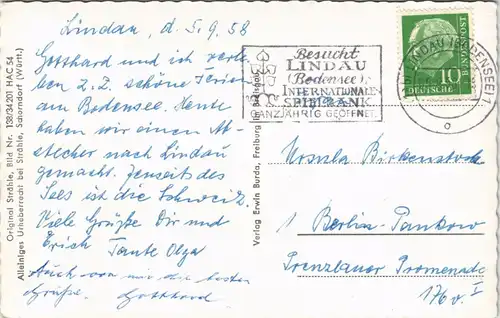 Lindau, d. 5.9.58
Gotthard und ich verleben
z.Z. schöne Ferien
am Bodensee. Heute
haben wir einen Abstecher
nach Lindau
gemacht. Jenseit des
Sees ist die Schweiz.
Viele Grüße Dir und
Erich Tante Olga
Auch von mir die besten
Grüße. Gotthard
Original Ströhle, Bild Nr. 138/34201 HAC 54
Alleiniges Urheberrecht bei Ströhle, Schorndorf (Württ.)
Verlag Erwin Burda, Freiburg
Besucht
LINDAU
(Bodensee)
INTERNATIONALE
SPIELBANK
GANZJÄHRIG GEÖFFNET
LINDAU (BODENSEE) 1
10
DEUTSCHE
BUNDESPOST
Ursula Birkenstock
1 Berlin-Pankow
Prenzlauer Promenade
176 v. I